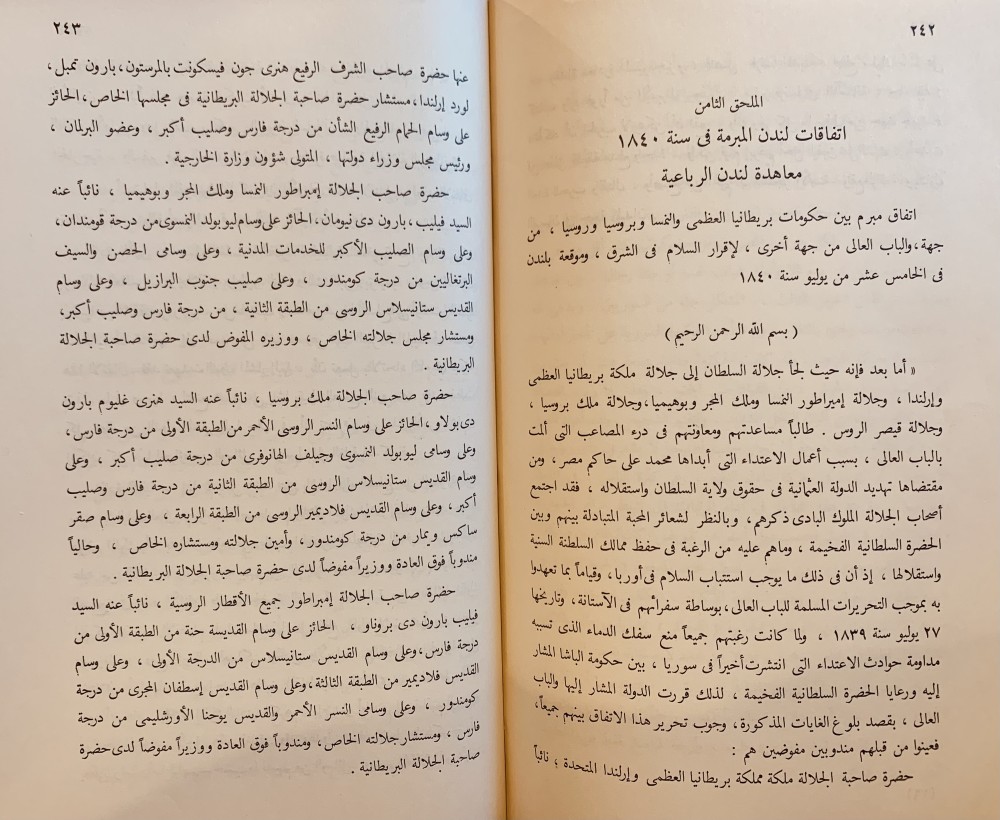 ٢٤٢
الملحق الثامن
اتفاقات لندن المبرمة فى سنة ١٨٤٠
معاهدة لندن الرباعية
اتفاق مبرم بين حكومات بريطانيا العظمى والنمسا وبروسيا وروسيا ، من
جهة، والباب العالى من جهة أخرى ، لإقرار السلام فى الشرق ، وموقعة بلندن
فى الخامس عشر من يوليو سنة ١٨٤٠
( بسم الله الرحمن الرحيم )
« أما بعد فإنه حيث لجأ جلالة السلطان إلى جلالة ملكة بريطانيا العظمى
وإرلندا ، وجلالة إمبراطور النمسا وملك المجر وبوهيميا، وجلالة ملك بروسيا ،
وجلالة قيصر الروس . طالباً مساعدتهم ومعاونتهم فى درء المصاعب التى ألمت
بالباب العالى ، بسبب أعمال الاعتداء التى أبداها محمد على حاكم مصر ، ومن
مقتضاها تهديد الدولة العثمانية فى حقوق ولاية السلطان واستقلاله ، فقد اجتمع
أصحاب الجلالة الملوك البادى ذكرهم ، وبالنظر لشعائر المحبة المتبادلة بينهم وبين
الحضرة السلطانية الفخيمة ، وماهم عليه من الرغبة فى حفظ ممالك السلطنة السنية
واستقلالها ، إذ أن فى ذلك ما يوجب استتباب السلام فى أوربا ، وقياماً بما تعهدوا
به بموجب التحريرات المسلمة للباب العالى، بوساطة سفرائهم فى الآستانة، وتاريخها
٢٧ يوليو سنة ١٨٣٩ ، ولما كانت رغبتهم جميعاً منع سفك الدماء الذى تسببه
مداومة حوادث الاعتداء التى انتشرت أخيراً فى سوريا ، بين حكومة الباشا المشار
إليه ورعايا الحضرة السلطانية الفخيمة ، لذلك قررت الدولة المشار إليها والباب
العالى ، بقصد بلوغ الغايات المذكورة، وجوب تحرير هذا الاتفاق بينهم جميعاً،
فعينوا من قبلهم مندوبين مفوضين هم :
حضرة صاحبة الجلالة ملكة مملكة بريطانيا العظمى وإرلندا المتحدة ؛ نائباً
٢٤٣
عنها حضرة صاحب الشرف الرفيع هنرى جون فيسكونت بالمرستون، بارون تمبل ،
لورد إرلندا، مستشار حضرة صاحبة الجلالة البريطانية فى مجلسها الخاص، الحائز
على وسام الحمام الرفيع الشأن من درجة فارس وصليب أكبر ، وعضو البرلمان ،
ورئيس مجلس وزراء دولتها ، المتولى شؤون وزارة الخارجية .
حضرة صاحب الجلالة إمبراطور النمسا وملك المجر وبوهيميا ، نائباً عنه
السيد فيليب، بارون دى نيومان، الحائز على وسام ليوبولد النمسوى من درجة قومندان،
وعلى وسام الصليب الأكبر للخدمات المدنية ، وعلى وسامى الحصن والسيف
البرتغاليين من درجة كومندور ، وعلى صليب جنوب البرازيل ، وعلى وسام
القديس ستانيسلاس الروسى من الطبقة الثانية ، من درجة فارس وصليب أكبر،
ومستشار مجلس جلالته الخاص ، ووزيره المفوض لدى حضرة صاحبة الجلالة
البريطانية .
حضرة صاحب الجلالة ملك بروسيا ، نائباً عنه السيد هنرى غليوم بارون
دى بولاو ، الحائز على وسام النسر الروسى الأحمر من الطبقة الأولى من درجة فارس،
وعلى وسامى ليوبولد النمسوى وجيلف الهانوفرى من درجة صليب أكبر ، وعلى
وسام القديس ستانيسلاس الروسى من الطبقة الثانية من درجة فارس وصليب
أكبر، وعلى وسام القديس فلاديمير الروسى من الطبقة الرابعة ، وعلى وسام صقر
ساكس ويمار من درجة كومندور، وأمين جلالته ومستشاره الخاص ، وحالياً
مندوباً فوق العادة ووزيراً مفوضاً لدى حضرة صاحبة الجلالة البريطانية .
حضرة صاحب الجلالة إمبراطور جميع الأقطار الروسية ، نائباً عنه السيد
فيليب بارون دى بروناو ، الحائز على وسام القديسة حنة من الطبقة الأولى من
درجة فارس، وعلى وسام القديس ستانيسلاس من الدرجة الأولى ، وعلى وسام
القديس فلاديمير من الطبقة الثالثة، وعلى وسام القديس إسطفان المجرى من درجة
كومندور ، وعلى وسامى النسر الأحمر والقديس يوحنا الأورشليمى من درجة
فارس ، ومستشار جلالته الخاص، ومندوباً فوق العادة ووزيراً مفوضاً لدى حضرة
صاحبة الجلالة البريطانية .